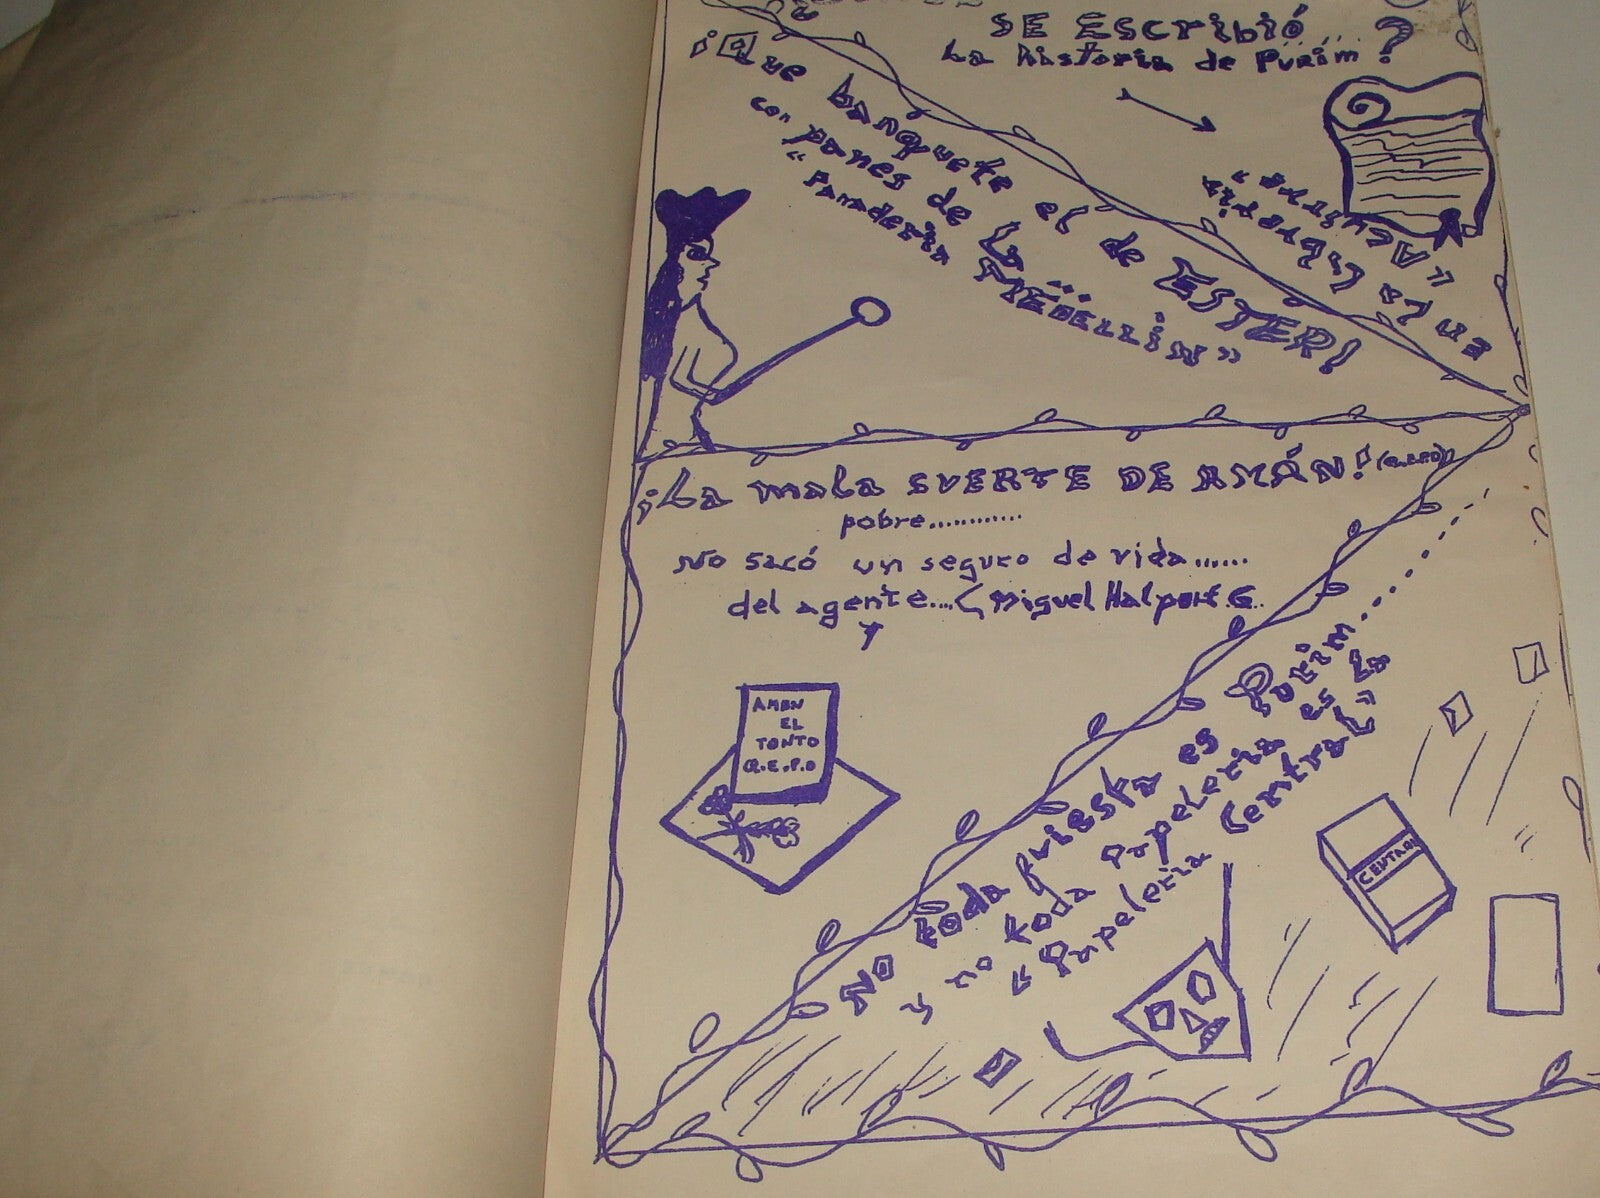 SE EScribió....?
La historia de Purim
En La Librería
"Acustre"
¡Que banquete el de ESTER!
con panes de La...
"Panaderia MEDELLiN"
¡La mala SUERTE DE AMÁN!
pobre............
No sacó un seguro de vida......
del agente...(Miguel Halpert G..
AMAN
EL
TONTO
Q.E.P.D
No toda fiesta es Purim.......
y no toda papeleria es la
"Papeleria Central"
CENTRAL